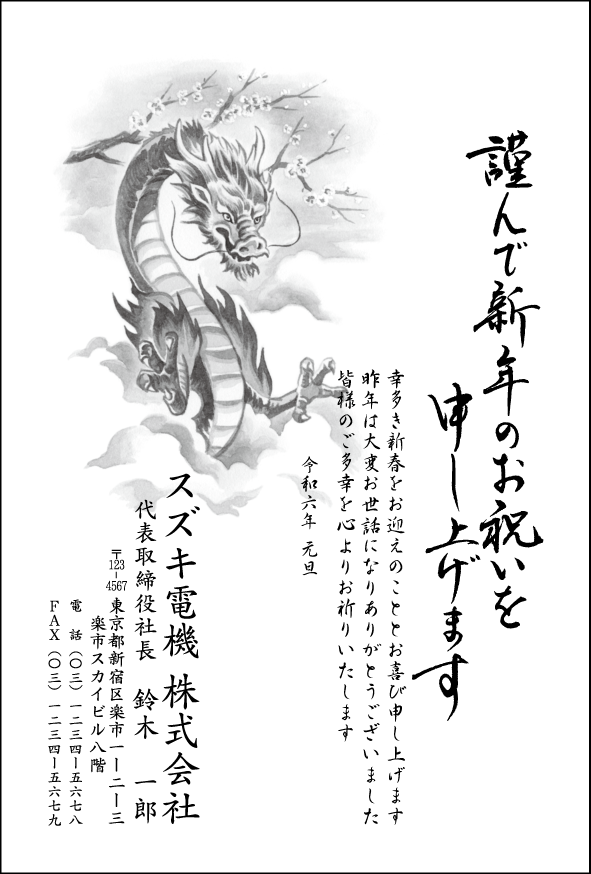 謹んで新年のお祝いを
申し上げます
幸多き新春をお迎えのこととお喜び申し上げます
昨年は大変お世話になりありがとうございました
皆様のご多幸を心よりお祈りいたします
令和六年 元旦
スズキ電機 株式会社
代表取締役社長 鈴木 一郎
〒123-4567 東京都新宿区楽市一ー二ー三
楽市スカイビル八階
電 話 (〇三) 一二三四ー五六七八
FAX (〇三) 一二三四ー五六七九